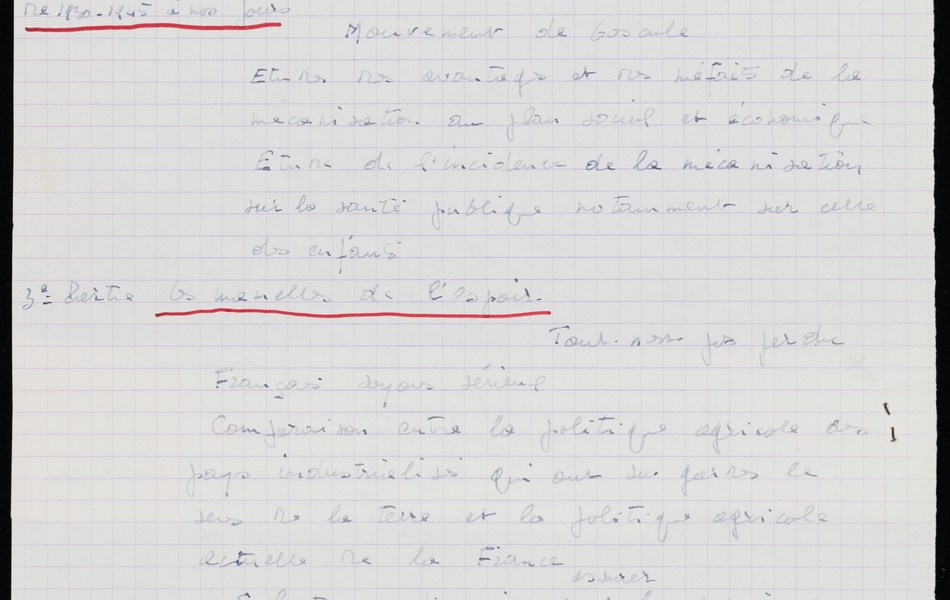 de 1930-1945 à nos jours
Mouvement de bascule
Etude des avantages et des méfaits de la
mécanisation au plan social et économique
Etude de l'incidence de la mécanisation
sur la santé publique notamment sur celle
des enfants
3e Partie les mamelles de l'Espoir.
Tout n'est pas perdu
Français soyons sérieux
Comparaison entre la politique agricole des
pays industrialisés qui ont su garder le
sens de la terre et la politique agricole
actuelle de la France
assurer